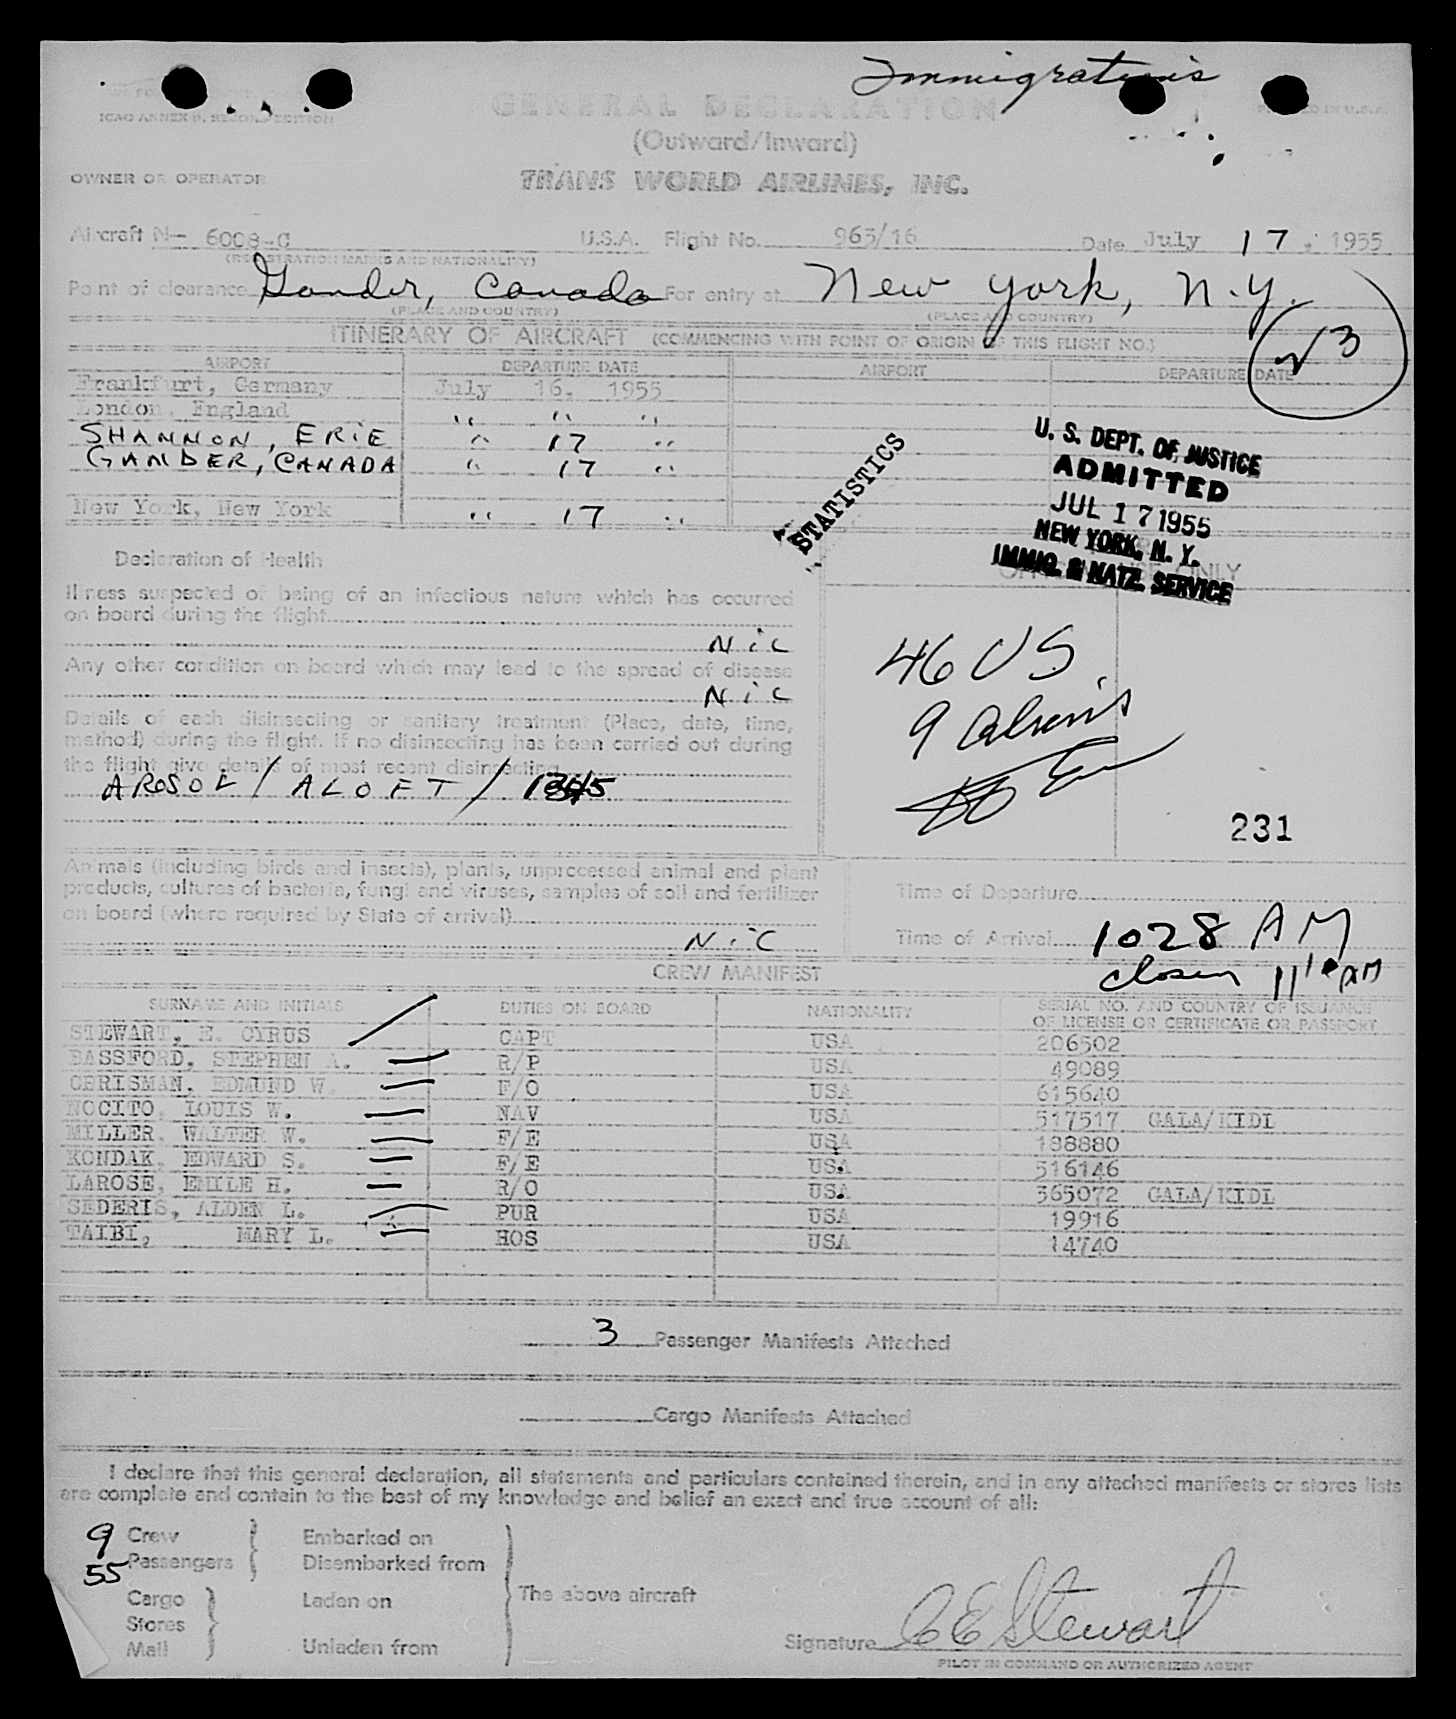 Immigration's
ICAO ANNEX 9, SECOND EDITION
GENERAL DECLARATION
(Outward/Inward)
OWNER OR OPERATOR
TRANS WORLD AIRLINES, INC.
Aircraft N- 6008-C U.S.A. Flight No. 963/16 Date July 17, 1955
(REGISTRATION MARKS AND NATIONALITY)
Point of clearance Gander, Canada For entry at New York, N.Y.
(PLACE AND COUNTRY) (PLACE AND COUNTRY)
ITINERARY OF AIRCRAFT (COMMENCING WITH POINT OF ORIGIN OF THIS FLIGHT NO.)
3
AIRPORT DEPARTURE DATE AIRPORT DEPARTURE DATE
Frankfurt, Germany July 16, 1955
London, England " " "
SHANNON, ERIE " 17 "
GANDER, CANADA " 17 "
New York, New York " 17 "
STATISTICS
U. S. DEPT. OF JUSTICE
ADMITTED
JUL 17 1955
NEW YORK, N. Y.
IMMIG. & NATZ. SERVICE
ONLY
Declaration of Health
Illness suspected of being of an infectious nature which has occurred
on board during the flight
NiL
Any other condition on board which may lead to the spread of disease
NiL
Details of each disinsecting or sanitary treatment (Place, date, time,
method) during the flight. If no disinsecting has been carried out during
the flight give details of most recent disinsecting
AROSOL/ALOFT/
46 US
9 Aliens
231
Animals (including birds and insects), plants, unprocessed animal and plant
products, cultures of bacteria, fungi and viruses, samples of soil and fertilizer
on board (where required by State of arrival)
NiL
Time of Departure
Time of Arrival 1028 AM
CREW MANIFEST
SURNAME AND INITIALS DUTIES ON BOARD NATIONALITY SERIAL NO. AND COUNTRY OF ISSUANCE
OF LICENSE OR CERTIFICATE OR PASSPORT
STEWART, E. CYRUS CAPT USA 206502
BASSFORD, STEPHEN A. R/P USA 49089
CHRISMAN, EDMUND W. F/O USA 615640
NOCITO, LOUIS W. NAV USA 517517 GALA/KIDL
MILLER, WALTER W. F/E USA 188880
KONDAK, EDWARD S. F/E USA 516146
LAROSE, EMILE H. R/O USA 365072 GALA/KIDL
SEDERIS, ALDEN L. PUR USA 19916
TAIBI, MARY L. HOS USA 14740
3 Passenger Manifests Attached
Cargo Manifests Attached
I declare that this general declaration, all statements and particulars contained therein, and in any attached manifests or stores lists
are complete and contain to the best of my knowledge and belief an exact and true account of all:
9 Crew Embarked on
55 Passengers Disembarked from
Cargo Laden on The above aircraft
Stores
Mail Unladen from
Signature C E Stewart
PILOT IN COMMAND OR AUTHORIZED AGENT